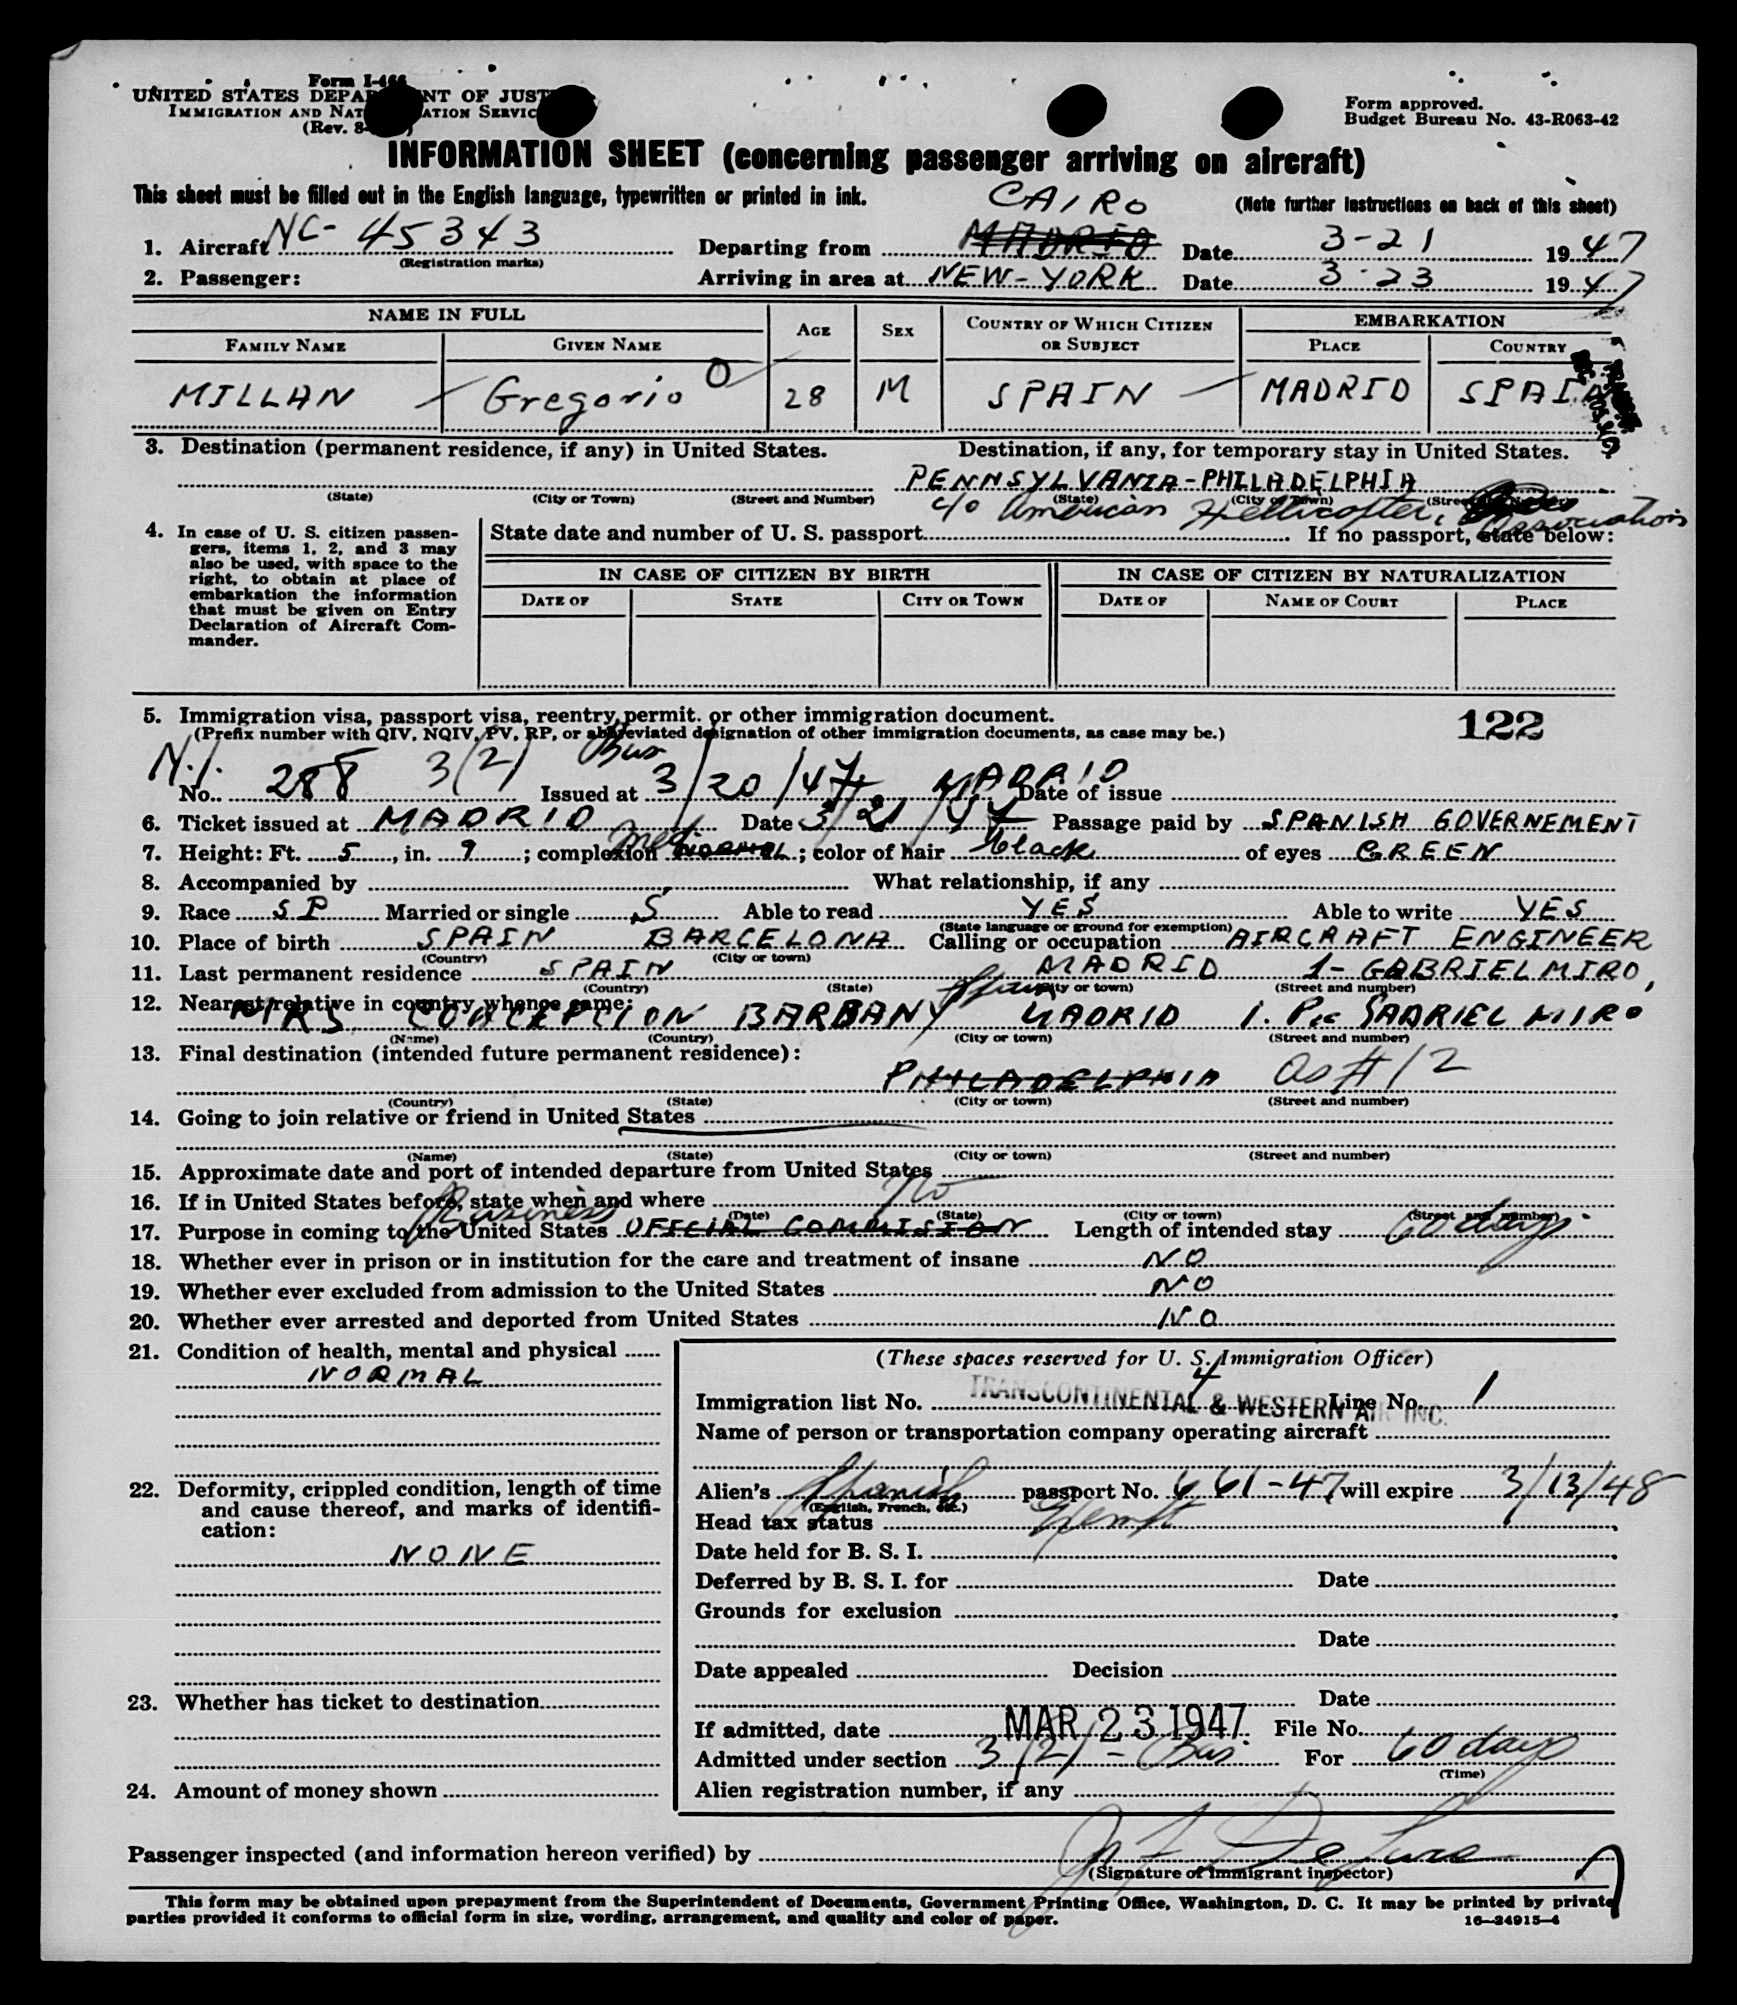 Form I-466
UNITED STATES DEPARTMENT OF JUSTICE
IMMIGRATION AND NATURALIZATION SERVICE
(Rev. 8-
Form approved.
Budget Bureau No. 43-R063-42
INFORMATION SHEET (concerning passenger arriving on aircraft)
This sheet must be filled out in the English language, typewritten or printed in ink.
(Note further instructions on back of this sheet)
CAIRO
1. Aircraft NC-45343 Departing from MADRID Date 3-21 1947
(Registration marks)
2. Passenger: Arriving in area at NEW-YORK Date 3-23 1947
NAME IN FULL AGE SEX COUNTRY OF WHICH CITIZEN OR SUBJECT EMBARKATION
FAMILY NAME GIVEN NAME PLACE COUNTRY
MILLAN Gregorio O 28 M SPAIN MADRID SPAIN
3. Destination (permanent residence, if any) in United States. Destination, if any, for temporary stay in United States.
PENNSYLVANIA-PHILADELPHIA
(State) (City or Town) (Street and Number) (State) (City or Town) (Street and Number)
c/o American Hellicofter, Association
4. In case of U. S. citizen passengers, items 1, 2, and 3 may also be used, with space to the right, to obtain at place of embarkation the information that must be given on Entry Declaration of Aircraft Commander.
State date and number of U. S. passport If no passport, state below:
IN CASE OF CITIZEN BY BIRTH IN CASE OF CITIZEN BY NATURALIZATION
DATE OF STATE CITY OR TOWN DATE OF NAME OF COURT PLACE
5. Immigration visa, passport visa, reentry permit, or other immigration document. 122
(Prefix number with QIV, NQIV, PV, RP, or abbreviated designation of other immigration documents, as case may be.)
N.I. 3(2) Bus
No. 288 Issued at 3/20/47 MADRID Date of issue
6. Ticket issued at MADRID Date 3/21/47 Passage paid by SPANISH GOVERNEMENT
Med.
7. Height: Ft. 5, in. 9; complexion NORMAL; color of hair black of eyes GREEN
8. Accompanied by What relationship, if any
9. Race SP Married or single S Able to read YES Able to write YES
(State language or ground for exemption)
10. Place of birth SPAIN BARCELONA Calling or occupation AIRCRAFT ENGINEER
(Country) (City or town)
11. Last permanent residence SPAIN MADRID 1-GABRIEL MIRO,
(Country) (State) (City or town) (Street and number)
12. Nearest relative in country whence came: Spain
MRS CONCEPCION BARBANY MADRID 1. Pza GABRIEL MIRO
(Name) (Country) (City or town) (Street and number)
13. Final destination (intended future permanent residence):
PHILADELPHIA as #12
(Country) (State) (City or town) (Street and number)
14. Going to join relative or friend in United States
(Name) (State) (City or town) (Street and number)
15. Approximate date and port of intended departure from United States
16. If in United States before, state when and where no
(Date) (State) (City or town) (Street and number)
Business
17. Purpose in coming to the United States OFFICIAL COMMISSION Length of intended stay 60 days
18. Whether ever in prison or in institution for the care and treatment of insane NO
19. Whether ever excluded from admission to the United States NO
20. Whether ever arrested and deported from United States NO
21. Condition of health, mental and physical
NORMAL
22. Deformity, crippled condition, length of time and cause thereof, and marks of identification:
NONE
23. Whether has ticket to destination
24. Amount of money shown
(These spaces reserved for U. S. Immigration Officer)
Immigration list No. 4 Line No. 1
TRANSCONTINENTAL & WESTERN AIR INC.
Name of person or transportation company operating aircraft
Alien's Spanish passport No. 661-47, will expire 3/13/48
(English, French, etc.)
Head tax status Exempt
Date held for B. S. I.
Deferred by B. S. I. for Date
Grounds for exclusion
Date
Date appealed Decision
Date
If admitted, date MAR 23 1947 File No.
Admitted under section 3(2)-Bus. For 60 days
(Time)
Alien registration number, if any
Passenger inspected (and information hereon verified) by
(Signature of immigrant inspector)
This form may be obtained upon prepayment from the Superintendent of Documents, Government Printing Office, Washington, D. C. It may be printed by private
parties provided it conforms to official form in size, wording, arrangement, and quality and color of paper. 16—24915-4